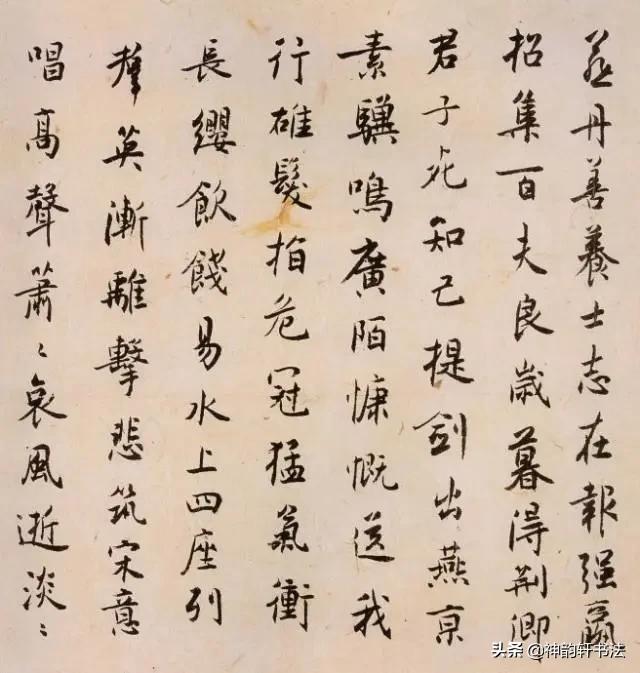 燕丹善養士志在報强嬴
招集百夫良歲暮得荆卿
君子死知己提劍出燕京
素驥鳴廣陌慷慨送我
行雄髮指危冠猛氣衝
長纓飲餞易水上四座列
羣英漸離擊悲筑宋意
唱高聲蕭〻哀風逝淡〻
头条 @神韵轩书法